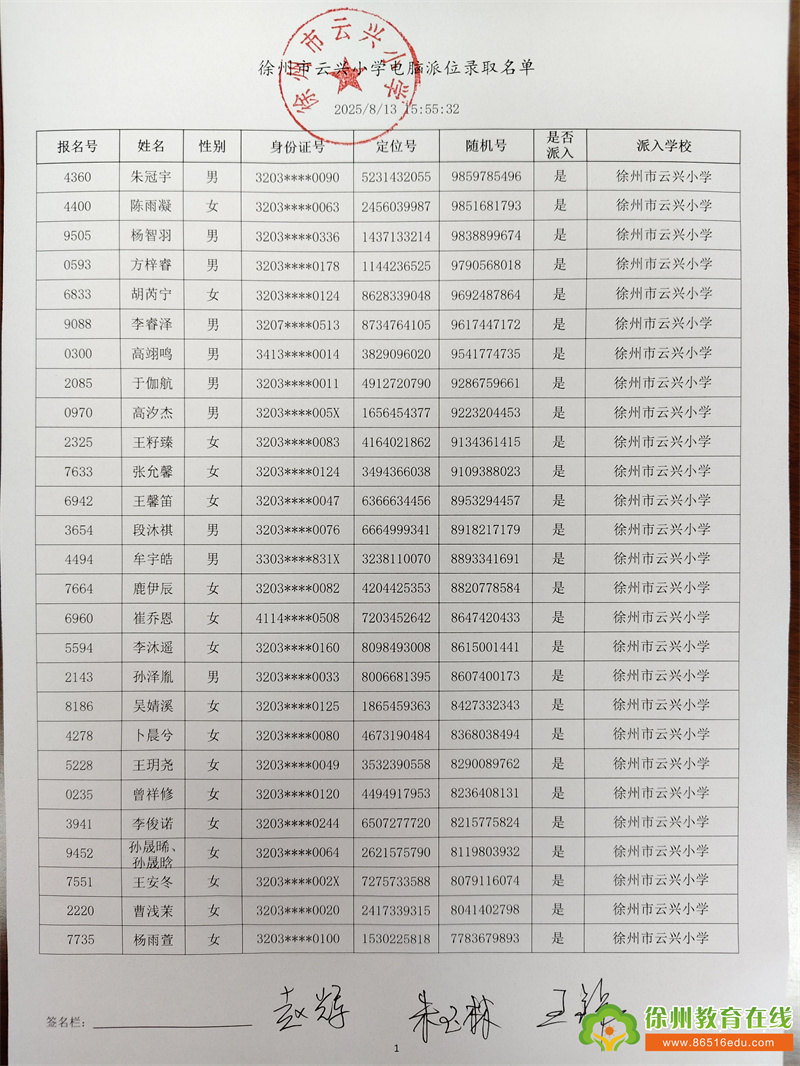 徐州市云兴小学
徐州市云兴小学电脑派位录取名单
2025/8/13 15:55:32
报名号 姓名 性别 身份证号 定位号 随机号 是否派入 派入学校
4360 朱冠宇 男 3203****0090 5231432055 9859785496 是 徐州市云兴小学
4400 陈雨凝 女 3203****0063 2456039987 9851681793 是 徐州市云兴小学
9505 杨智羽 男 3203****0336 1437133214 9838899674 是 徐州市云兴小学
0593 方梓睿 男 3203****0178 1144236525 9790568018 是 徐州市云兴小学
6833 胡芮宁 女 3203****0124 8628339048 9692487864 是 徐州市云兴小学
9088 李睿泽 男 3207****0513 8734764105 9617447172 是 徐州市云兴小学
0300 高翊鸣 男 3413****0014 3829096020 9541774735 是 徐州市云兴小学
2085 于伽航 男 3203****0011 4912720790 9286759661 是 徐州市云兴小学
0970 高汐杰 男 3203****005X 1656454377 9223204453 是 徐州市云兴小学
2325 王籽臻 女 3203****0083 4164021862 9134361415 是 徐州市云兴小学
7633 张允馨 女 3203****0124 3494366038 9109388023 是 徐州市云兴小学
6942 王馨笛 女 3203****0047 6366634456 8953294457 是 徐州市云兴小学
3654 段沐祺 男 3203****0076 6664999341 8918217179 是 徐州市云兴小学
4494 牟宇皓 男 3303****831X 3238110070 8893341691 是 徐州市云兴小学
7664 鹿伊辰 女 3203****0082 4204425353 8820778584 是 徐州市云兴小学
6960 崔乔恩 女 4114****0508 7203452642 8647420433 是 徐州市云兴小学
5594 李沐遥 女 3203****0160 8098493008 8615001441 是 徐州市云兴小学
2143 孙泽胤 男 3203****0033 8006681395 8607400173 是 徐州市云兴小学
8186 吴婧溪 女 3203****0125 1865459363 8427332343 是 徐州市云兴小学
4278 卜晨兮 女 3203****0080 4673190484 8368038494 是 徐州市云兴小学
5228 王玥尧 女 3203****0049 3532390558 8290089762 是 徐州市云兴小学
0235 曾祥修 女 3203****0120 4494917953 8236408131 是 徐州市云兴小学
3941 李俊诺 女 3203****0244 6507277720 8215775824 是 徐州市云兴小学
9452 孙晟晞、孙晟晗 女 3203****0064 2621575790 8119803932 是 徐州市云兴小学
7551 王安冬 女 3203****002X 7275733588 8079116074 是 徐州市云兴小学
2220 曹浅茉 女 3203****0020 2417339315 8041402798 是 徐州市云兴小学
7735 杨雨萱 女 3203****0100 1530225818 7783679893 是 徐州市云兴小学
签名栏： 赵辉 朱玉林 王
1
徐州教育在线
www.86516edu.com